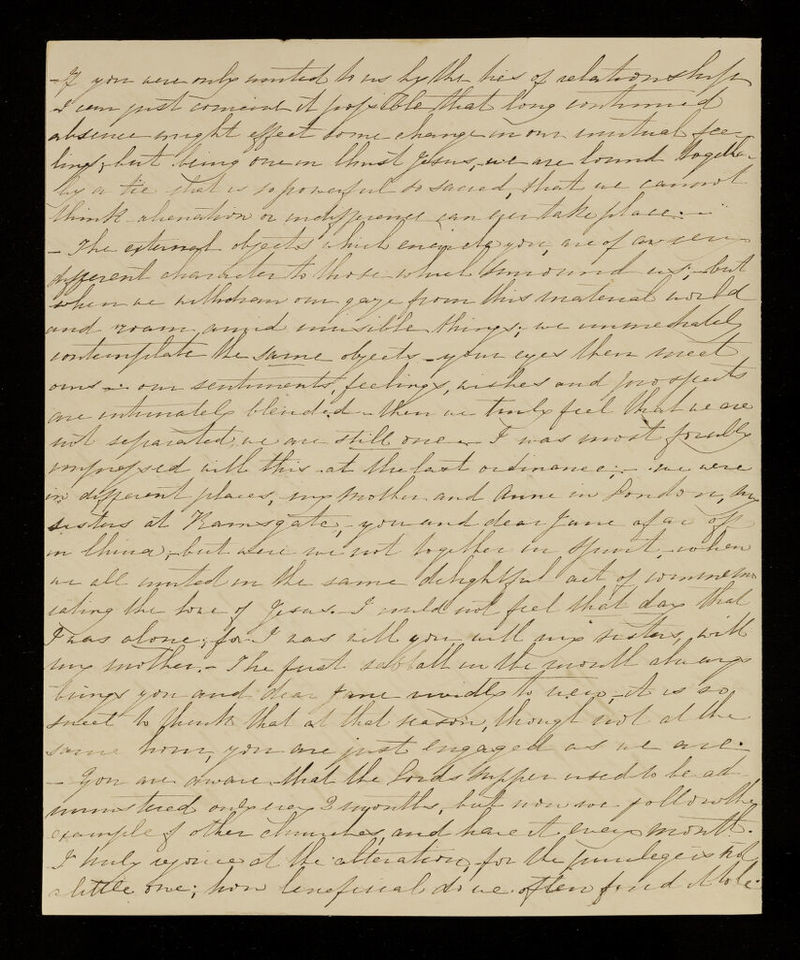 - If you were only united to us by the ties of relationship
I can just conceive it possible that long continued
absence might effect some change in our mutual fee-
lings, but being one in Christ Jesus, we are bound together
by a tie that is so powerful so sacred, that we cannot
think alienation or indifference can ever take place. -
- The external objects which encircle you, are of a very
different character to those which surround us; - but
when we withdraw our gaze from this material world
and roam amid invisible things; we immediately
contemplate the same objects - your eyes then meet
ours - our sentiments, feelings, wishes and prospects
are intimately blended - then we truly feel that we are
not separated, we are still one - I was most forcibly
impressed with this at the last ordinance; - we were
in different places, my Mother and Anne in London, my
sisters at Ramsgate, you and dear Jane afar off
in China, - but were we not together in spirit, when
we all united in the same delightful act of commemo
rating the love of Jesus - I could not feel that day that
I was alone; for I was with you, with my sisters, with
my mother. - The first sabbath in the month always
brings you and dear Jane vividly to view, - it is so
sweet to think that at that season, though not at the
same hour, you are just engaged as we are.
- You are aware that the Lords Supper used to be ad
ministered only every 2 months, but now we follow the
example of other churches, and have it every month.
I truly rejoice at the alteration, for the privilege is not
a little one; how beneficial do we often find it to be.